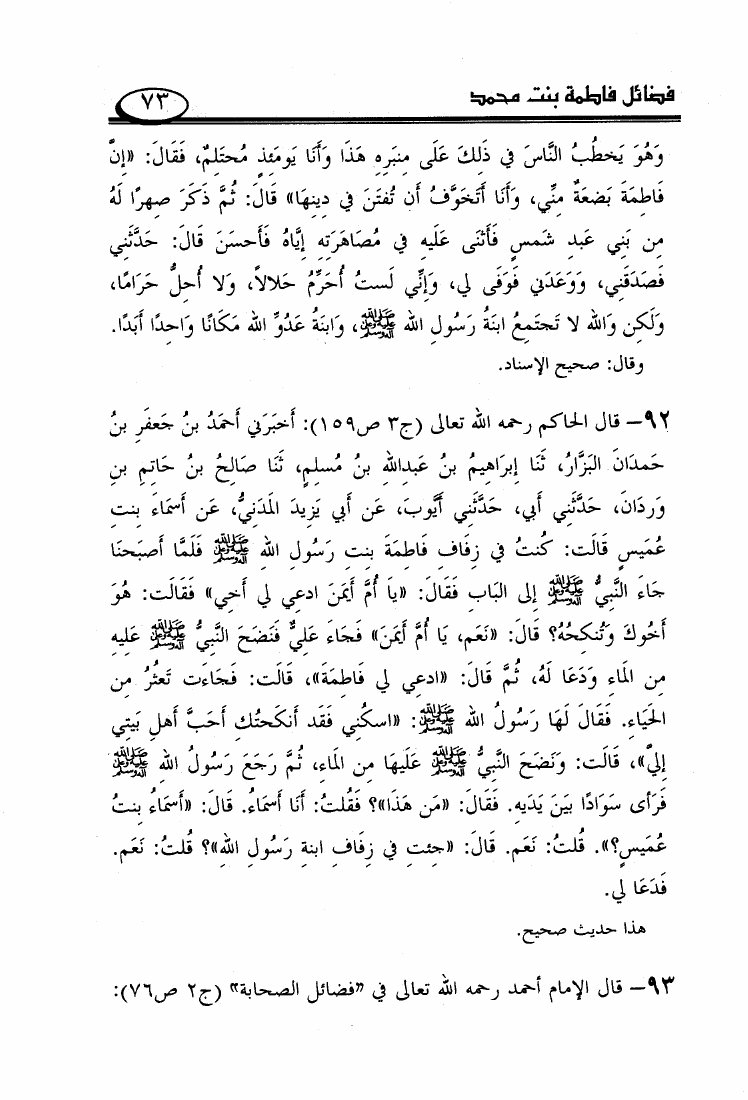 فضائل فاطمة بنت محمد
٧٣
وَهُوَ يَخطُبُ النَّاسَ في ذَلِكَ عَلَى مِنبَرِه هَذَا وَأَنَا يَومَئذٍ مُحتَلِمٌ، فَقَالَ: «إنَّ
فَاطِمَةَ بَضعَةٌ مِنِّي، وَأَنَا أَتَخوَّفُ أَن تُفتَنَ في دِينِهَا» قَالَ: ثُمَّ ذَكَرَ صِهرًا لَهُ
مِن بَنِي عَبدِ شَمسٍ فَأَثنَى عَلَيهِ في مُصَاهَرَتِه إيَّاهُ فَأَحسَنَ قَالَ: حَدَّثَنِي
فَصَدَقَنِي، وَوَعَدَنِي فَوَفَى لي، وَإنِّي لَستُ أُحَرِّمُ حَلالاً، وَلا أُحِلُّ حَرَامًا،
وَلَكِن وَالله لا تَجتَمِعُ ابنَةُ رَسُولِ الله ﷺ، وَابنَةُ عَدُوِّ الله مَكَانًا وَاحِدًا أَبَدًا.
وقال: صحيح الإسناد.
٩٢- قال الحاكم رحمه الله تعالى (ج٣ ص١٥٩): أَخبَرَنِي أَحمَدُ بنُ جَعفَرِ بنُ
حَمدَانَ البَزَّارُ، ثَنَا إبرَاهِيمُ بنُ عَبدِالله بنُ مُسلِمٍ، ثَنَا صَالِحُ بنُ حَاتِمِ بنِ
وَردَانَ، حَدَّثَنِي أَبي، حَدَّثَنِي أَيُّوبَ، عَن أَبي يَزِيدَ المَدَنِيُّ، عَن أَسمَاءَ بنتِ
عُمَيسٍ قَالَت: كُنتُ في زِفَافِ فَاطِمَةَ بِنتِ رَسُولِ الله ﷺ فَلَمَّا أَصبَحنَا
جَاءَ النَّبِيُّ ﷺ إلى البَابِ فَقَالَ: «يا أُمَّ أَيمَنَ ادعِي لي أَخِي» فَقَالَت: هُوَ
أَخُوكَ وَتُنكِحُهُ؟ قَالَ: «نَعَم، يَا أُمَّ أَيمَنَ» فَجَاءَ عَلِيٌّ فَنَضَحَ النَّبِيُّ ﷺ عَلَيهِ
مِن المَاءِ وَدَعَا لَهُ، ثُمَّ قَالَ: «ادعِي لي فَاطِمَةَ»، قَالَت: فَجَاءَت تَعثُرُ مِن
الحَيَاءِ. فَقَالَ لَهَا رَسُولُ الله ﷺ: «اسكُنِي فَقَد أَنكَحتُكِ أَحَبَّ أَهلِ بَيتِي
إليَّ»، قَالَت: وَنَضَحَ النَّبِيُّ ﷺ عَلَيهَا مِن المَاءِ، ثُمَّ رَجَعَ رَسُولُ الله ﷺ
فَرَأَى سَوَادًا بَينَ يَدَيهِ. فَقَالَ: «مَن هَذَا»؟ فَقُلتُ: أَنَا أَسمَاءُ. قَالَ: «أَسمَاءُ بِنتُ
عُمَيسٍ؟». قُلتُ: نَعَم. قَالَ: «جِئتِ في زِفَافِ ابنةِ رَسُولِ الله»؟ قُلتُ: نَعَم.
فَدَعَا لي.
هذا حديث صحيح.
٩٣- قال الإمام أحمد رحمه الله تعالى في «فضائل الصحابة» (ج٢ ص٧٦):